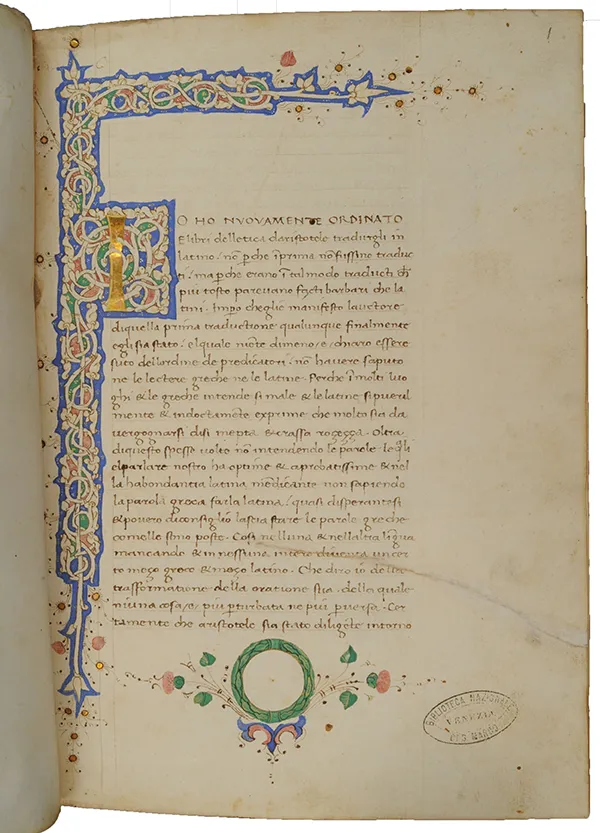 1
IO HO NUOVAMENTE ORDINATO
E libri delletica daristotele tradurgli in
latino . nō ꝑche īprima nō fussino traduc
ti . ma ꝑche erano ītalmodo traducti chī
piu tosto pareuano facti barbari che la
tini . Impo cheglie manifesto lauctore
diquella prima traductione qualunque finalmente
eglisia stato . elquale niēte dimeno /e/ chiaro essere
suto dellordine de predicatori . nō hauere saputo
ne le lectere greche ne le latine . Perche ī molti luo
ghi & le greche intende si male & le latine si puerul
mente & indoctamēte exprime che molto sia da
uergognarsi disi inepta & crassa rozezza . Oltra
diquesto spesse uolte nō intendendo le parole leq̄li
elparlare nostro ha optime & aprobatissime & nel
la habondantia latina medicante non sapiendo
la parola greca farla latina / quasi disperantesi
& pouero diconsiglio lascia stare le parole greche
comelle sono poste . Cosi nelluna & nellaltra līgua
mancando & in nessuna intero diuenta un cer
to mezo greco & mezo latino . Che diro io della
trasformatione della oratione sua . della quale
niuna cosa /e/ piu ꝑturbata ne piu ꝑuersa . Cer
tamente che aristotele sia stato diligēte intorno
BIBLIOTECA NAZIONALE
VENEZIA
DI S. MARCO